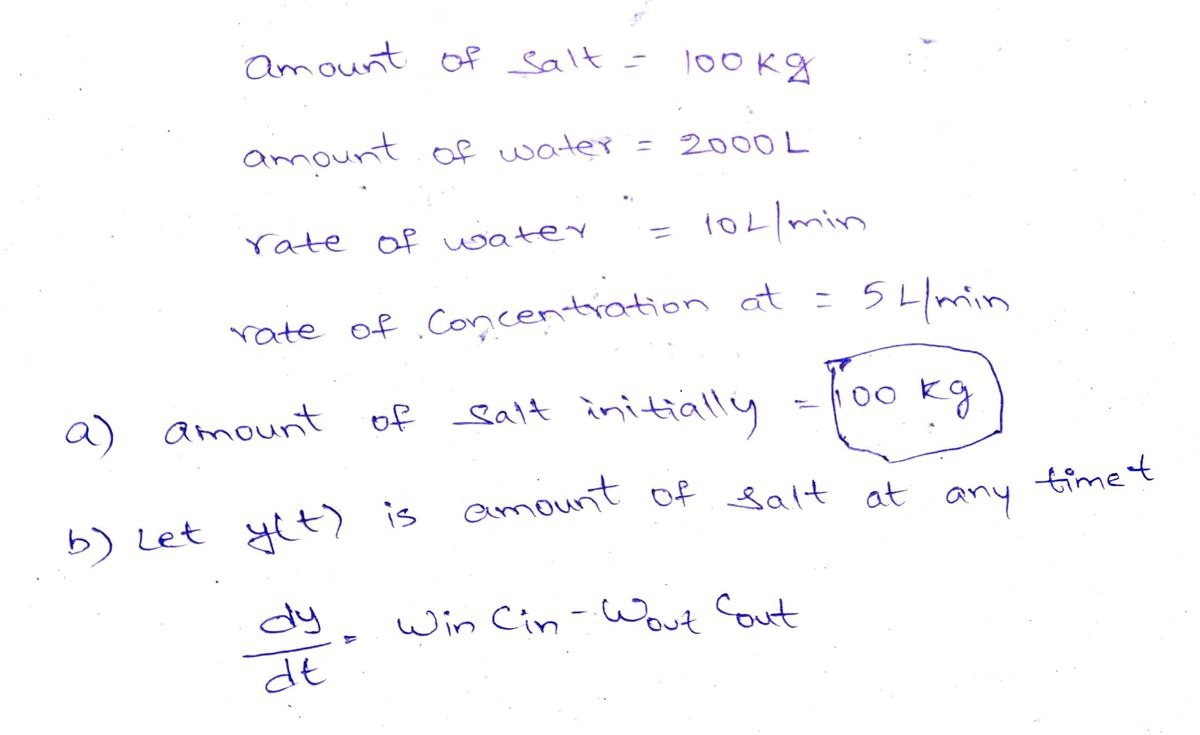 amount of salt = 100 kg
amount of water = 2000 L
rate of water = 10 L/min
rate of Concentration at = 5 L/min
a) amount of salt initially = 100 kg
b) Let y(t) is amount of salt at any time t
dy/dt = Win Cin - Wout Cout